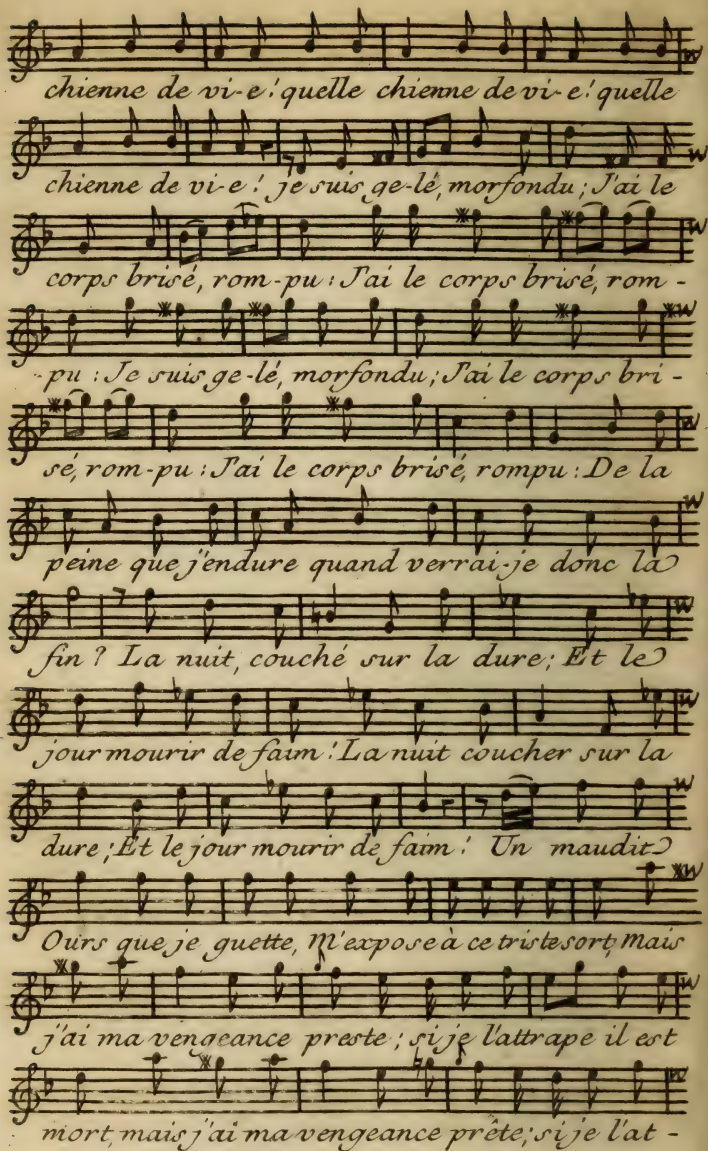 chienne de vi-e! quelle chienne de vi-e! quelle
chienne de vi-e! je suis ge-lé, morfondu; J'ai le
corps brisé, rom-pu: J'ai le corps brisé, rom-
-pu: Je suis ge-lé, morfondu; J'ai le corps bri-
sé, rom-pu: J'ai le corps brisé, rompu: De la
peine que j'endure quand verrai-je donc la
fin? La nuit, couché sur la dure; Et le
jour mourir de faim! La nuit coucher sur la
dure; Et le jour mourir de faim! Un maudit
Ours que je guette, M'expose à ce triste sort, mais
j'ai ma vengeance preste; si je l'attrape il est
mort, mais j'ai ma vengeance prête; si je l'at-